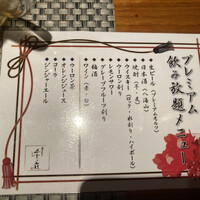 プレミアム
飲み放題メニュー
◆生ビール（プレミアムモルツ）
◆日本酒（八海山）
◆焼酎（芋・麦）
◆ウイスキー（ロック・水割り・ハイボール）
◆ウーロン割り
◆レモンサワー
◆グレープフルーツ割り
◆梅酒
◆ワイン（赤・白）
◆ウーロン茶
◆オレンジジュース
◆コーラ
◆ジンジャーエール